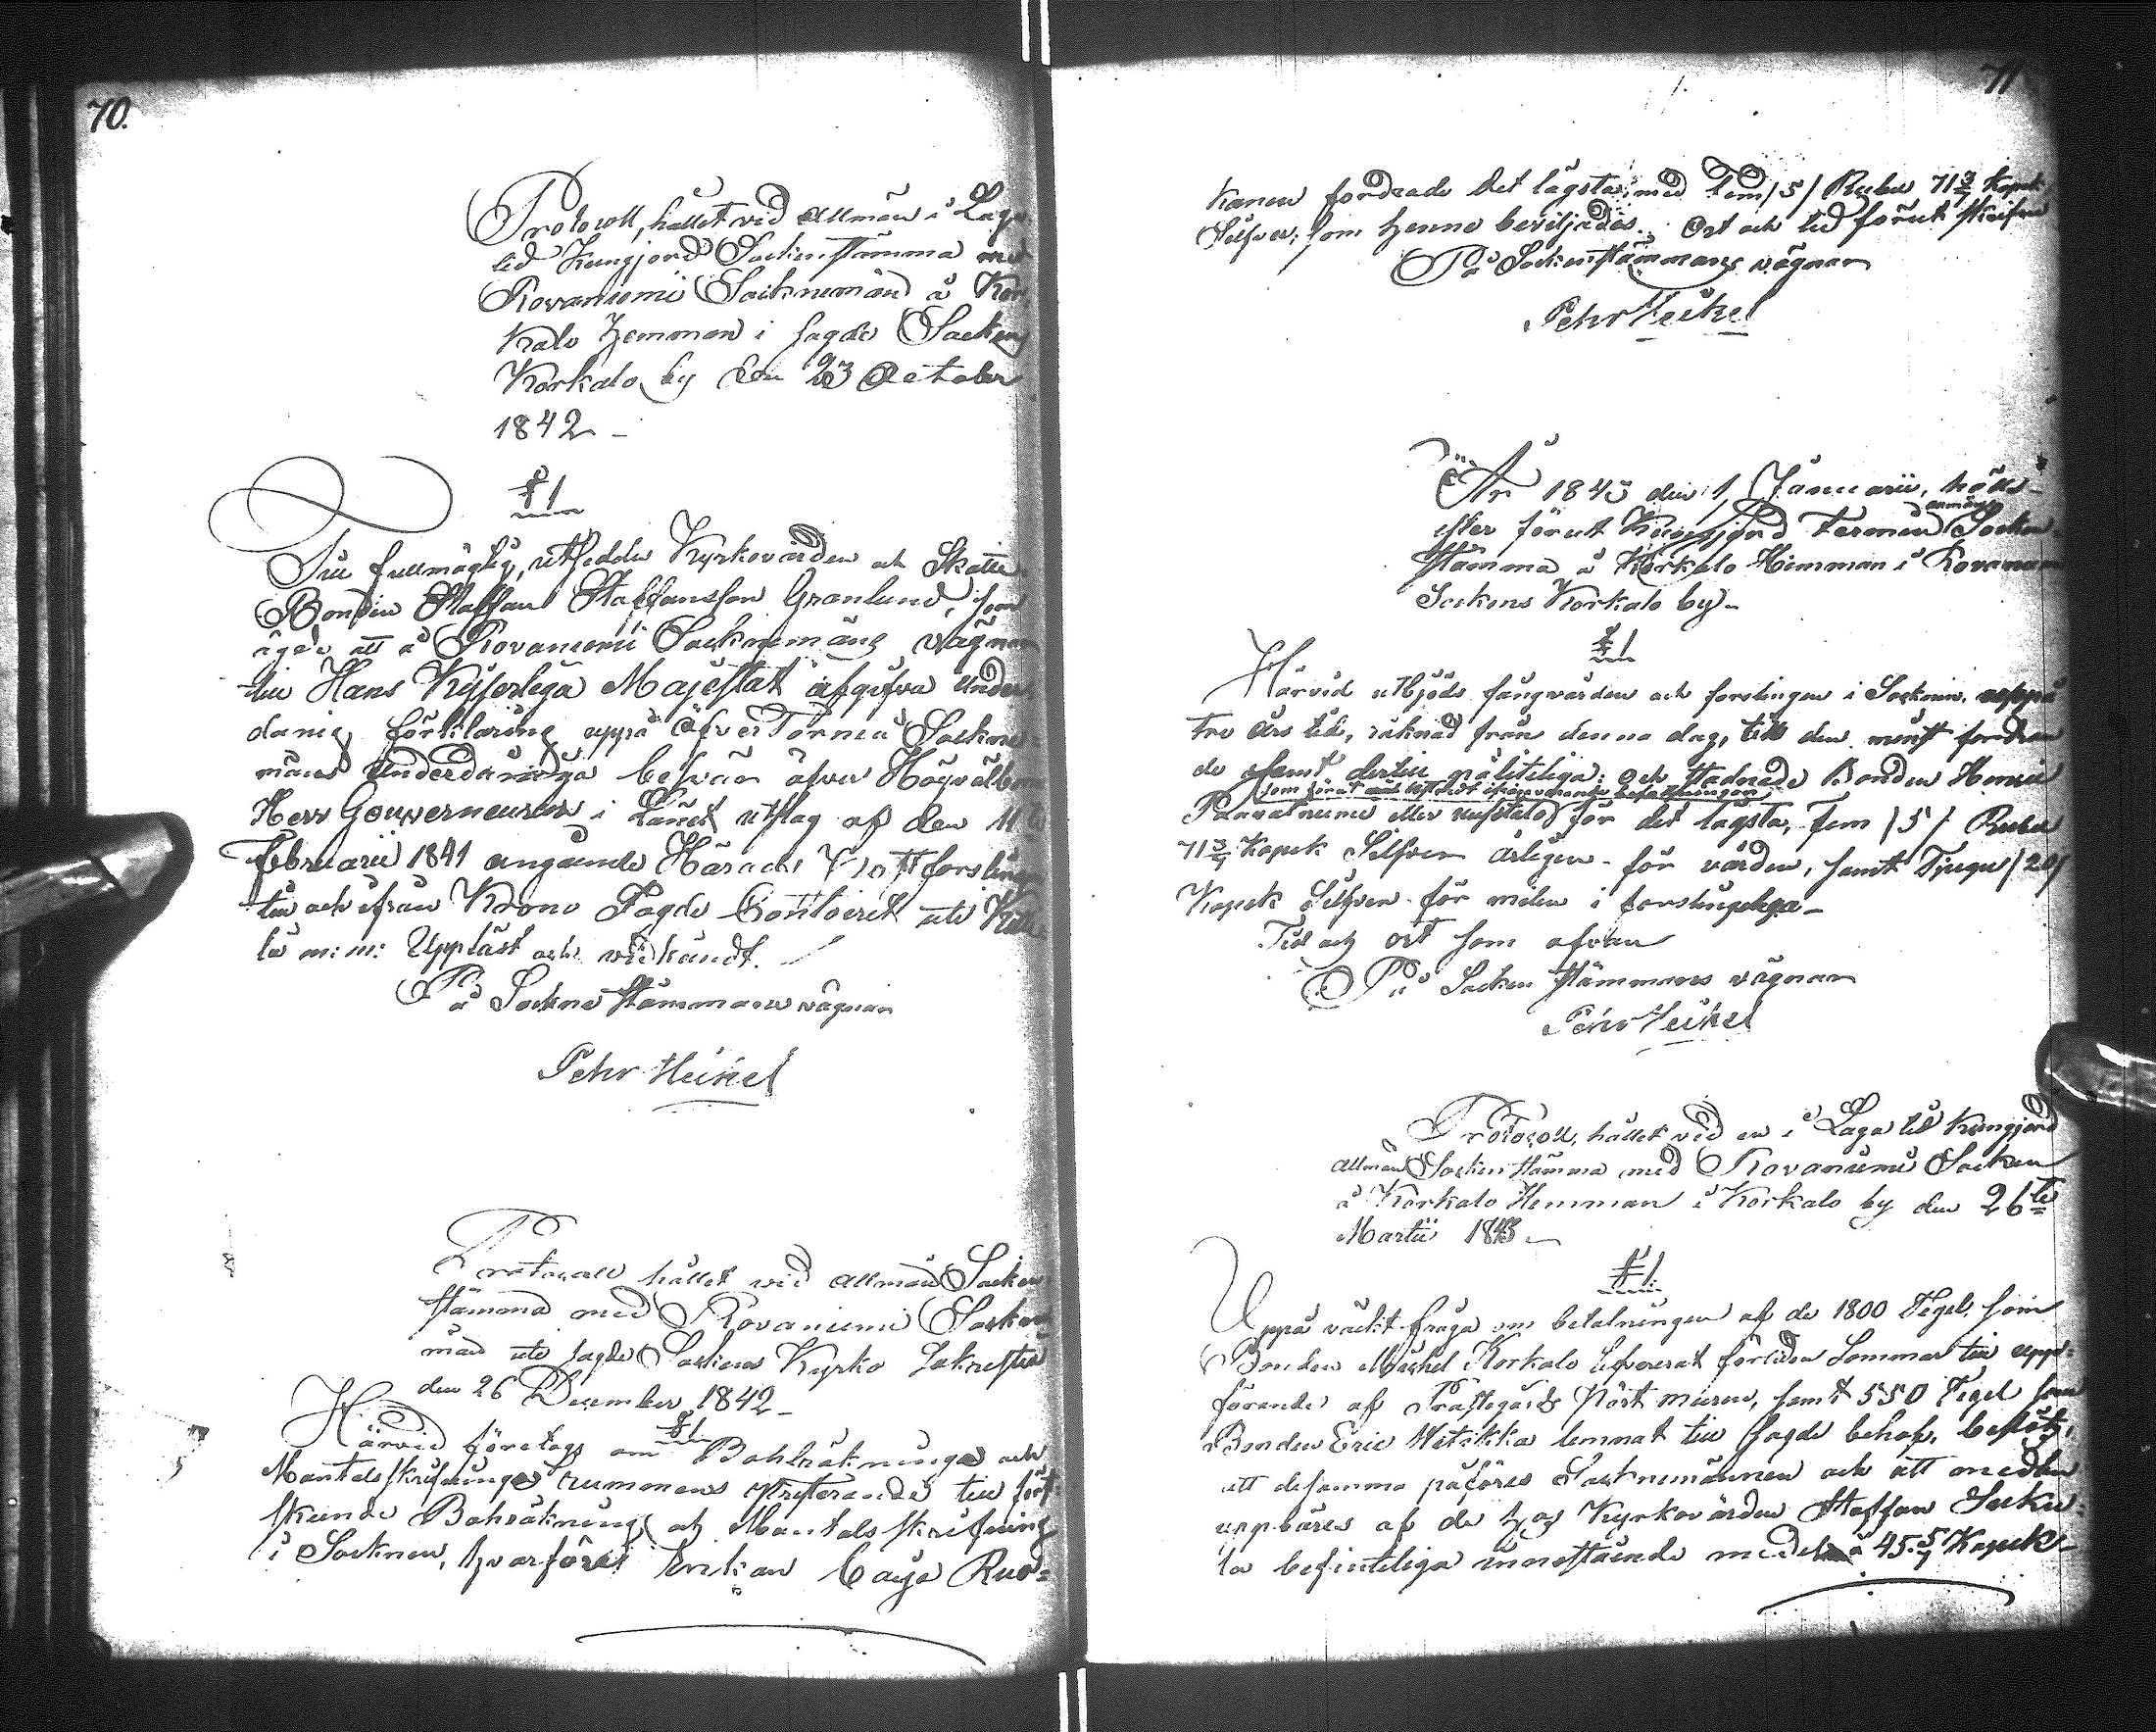 70.
Protocoll, hållet vid allmän i Laga
tid Kungjord Sockenstämma med
Rovaniemi Socknemän å Kor-
kalo Hemman i sagde Socken
Korkalo by den 23 October
1842 -
§ 1
Till fullmägtig, utsedde Kyrkovärden och Skatte
Bonden Staffan Staffansson Granlund, som
ägde att å Rovaniemi Socknemäns vägnar
till Hans Kejserliga Majestät afgifva under
danig förklaring uppå öfver Torneå Sockne
mäns Underdåniga besvär öfver Högvälborne
Herr Gouverneurens i Länet utslag af den 11
Februarii 1841 angående Härads forsling
till och ifrån Krono Fogde Contoiret uti
lä m: m: Uppläst och vidkändt.
På Sockne Stämmans vägnar
Pehr Heikel
Protocoll hållet vid allmän Socken
stämma med Rovaniemi Sockne
män uti sagde Sockens Kyrko Sakristia
den 26 December 1842 -
§ 1
Härvid företogs om Bohlräknings och
Mantalsskrifnings rummens till före
stående Bohräkning och Mantals skrifning
i Socknen, hvarföre Enkan Caisa Ruo=
71
kanen fordrade det lägsta, med fem /5/ Rubel 71 3/7 Kopek
Silfver, som henne beviljades. Ort och tid förut skrifne
På Sockenstämmans vägnar
Pehr Heikel
År 1843 den 1 Januarii, hölls
efter förut Kungjord Termin allmän Socken-
stämma å Korkalo Hemman i Rovaniemi
Sockens Korkalo by -
§ 1
Härvid utbjöds fångvården och forslingen i Socknen, uppå
tre års tid, räknad från denna dag, till den minst fordran
de samt dertill pålitliga; och stadnade Bonden Henric
Paavalniemi eller för det lägsta, Fem /5/ Rubel
71 3/7 Kopek Silfver årligen för vården, samt Tjugu /20/
Kopek Silfver för milen i forslingslega -
Tid och ort som ofvan
På Socken Stämmans vägnar
Pehr Heikel
Protocoll, hållet vid en i Laga tid Kungjord
allmän Sockenstämma med Rovaniemi Socken
å Korkalo Hemman i Korkalo by den 26te
Martii 1843 -
§ 1.
Uppå väckt fråga om betalningen af de 1800 Tegel, som
Bonden Michel Korkalo lefvererat förliden Sommar till upp=
förande af Prästegårds muren, samt 550 Tegel som
Bonden Eric Metsikka lemnat till sagde behof, beslöts,
att desamma påföres Socknemännen och att medlen
uppbäres af de hos Kyrkovärden Staffan
la befinteliga innestående medel å 45 5/7 Kopek -